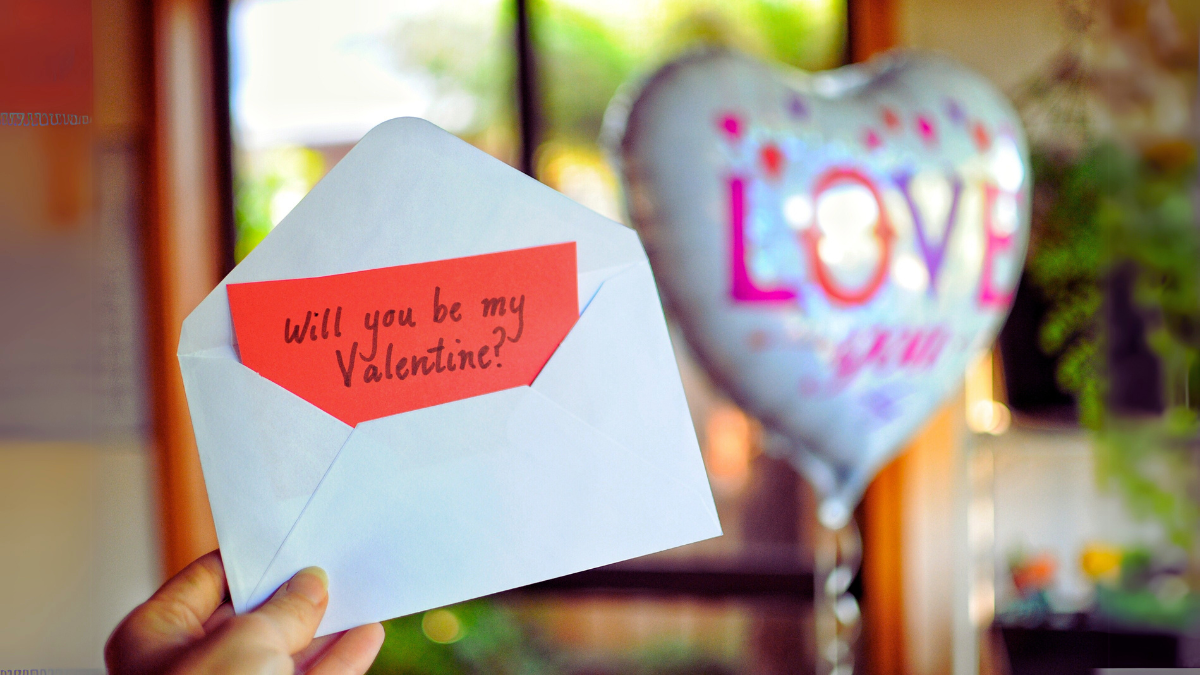 Will you be my
Valentine?
LOVE
you